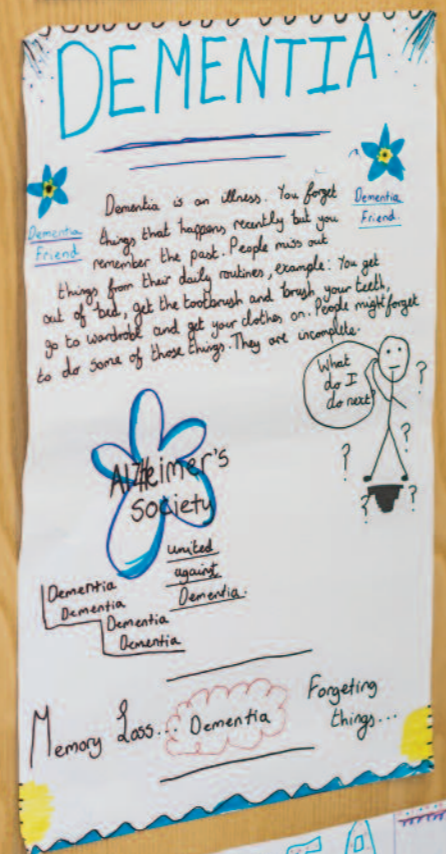 DEMENTIA
Dementia
Friend
Dementia
Friend
Dementia is an illness. You forget
things that happens recently but you
remember the past. People miss out
things from their daily routines, example: You get
out of bed, get the toothbrush and brush your teeth,
go to wardrobe and get your clothes on. People might forget
to do some of those things. They are incomplete.
What
do I
do next?
? ? ? ? ?
Alzheimer's
Society
united
against
Dementia.
Dementia
Dementia
Dementia
Dementia
Memory Loss...
Dementia
Forgeting
things...